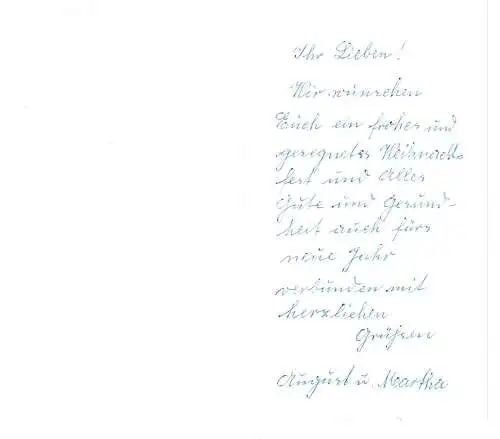 Ihr Lieben!
Wir wünschen
Euch ein frohes und
gesegnetes Weihnachts-
fest und Alles
Gute und Gesund-
heit auch fürs
neue Jahr
verbunden mit
herzlichen
Grüßen
August u. Martha